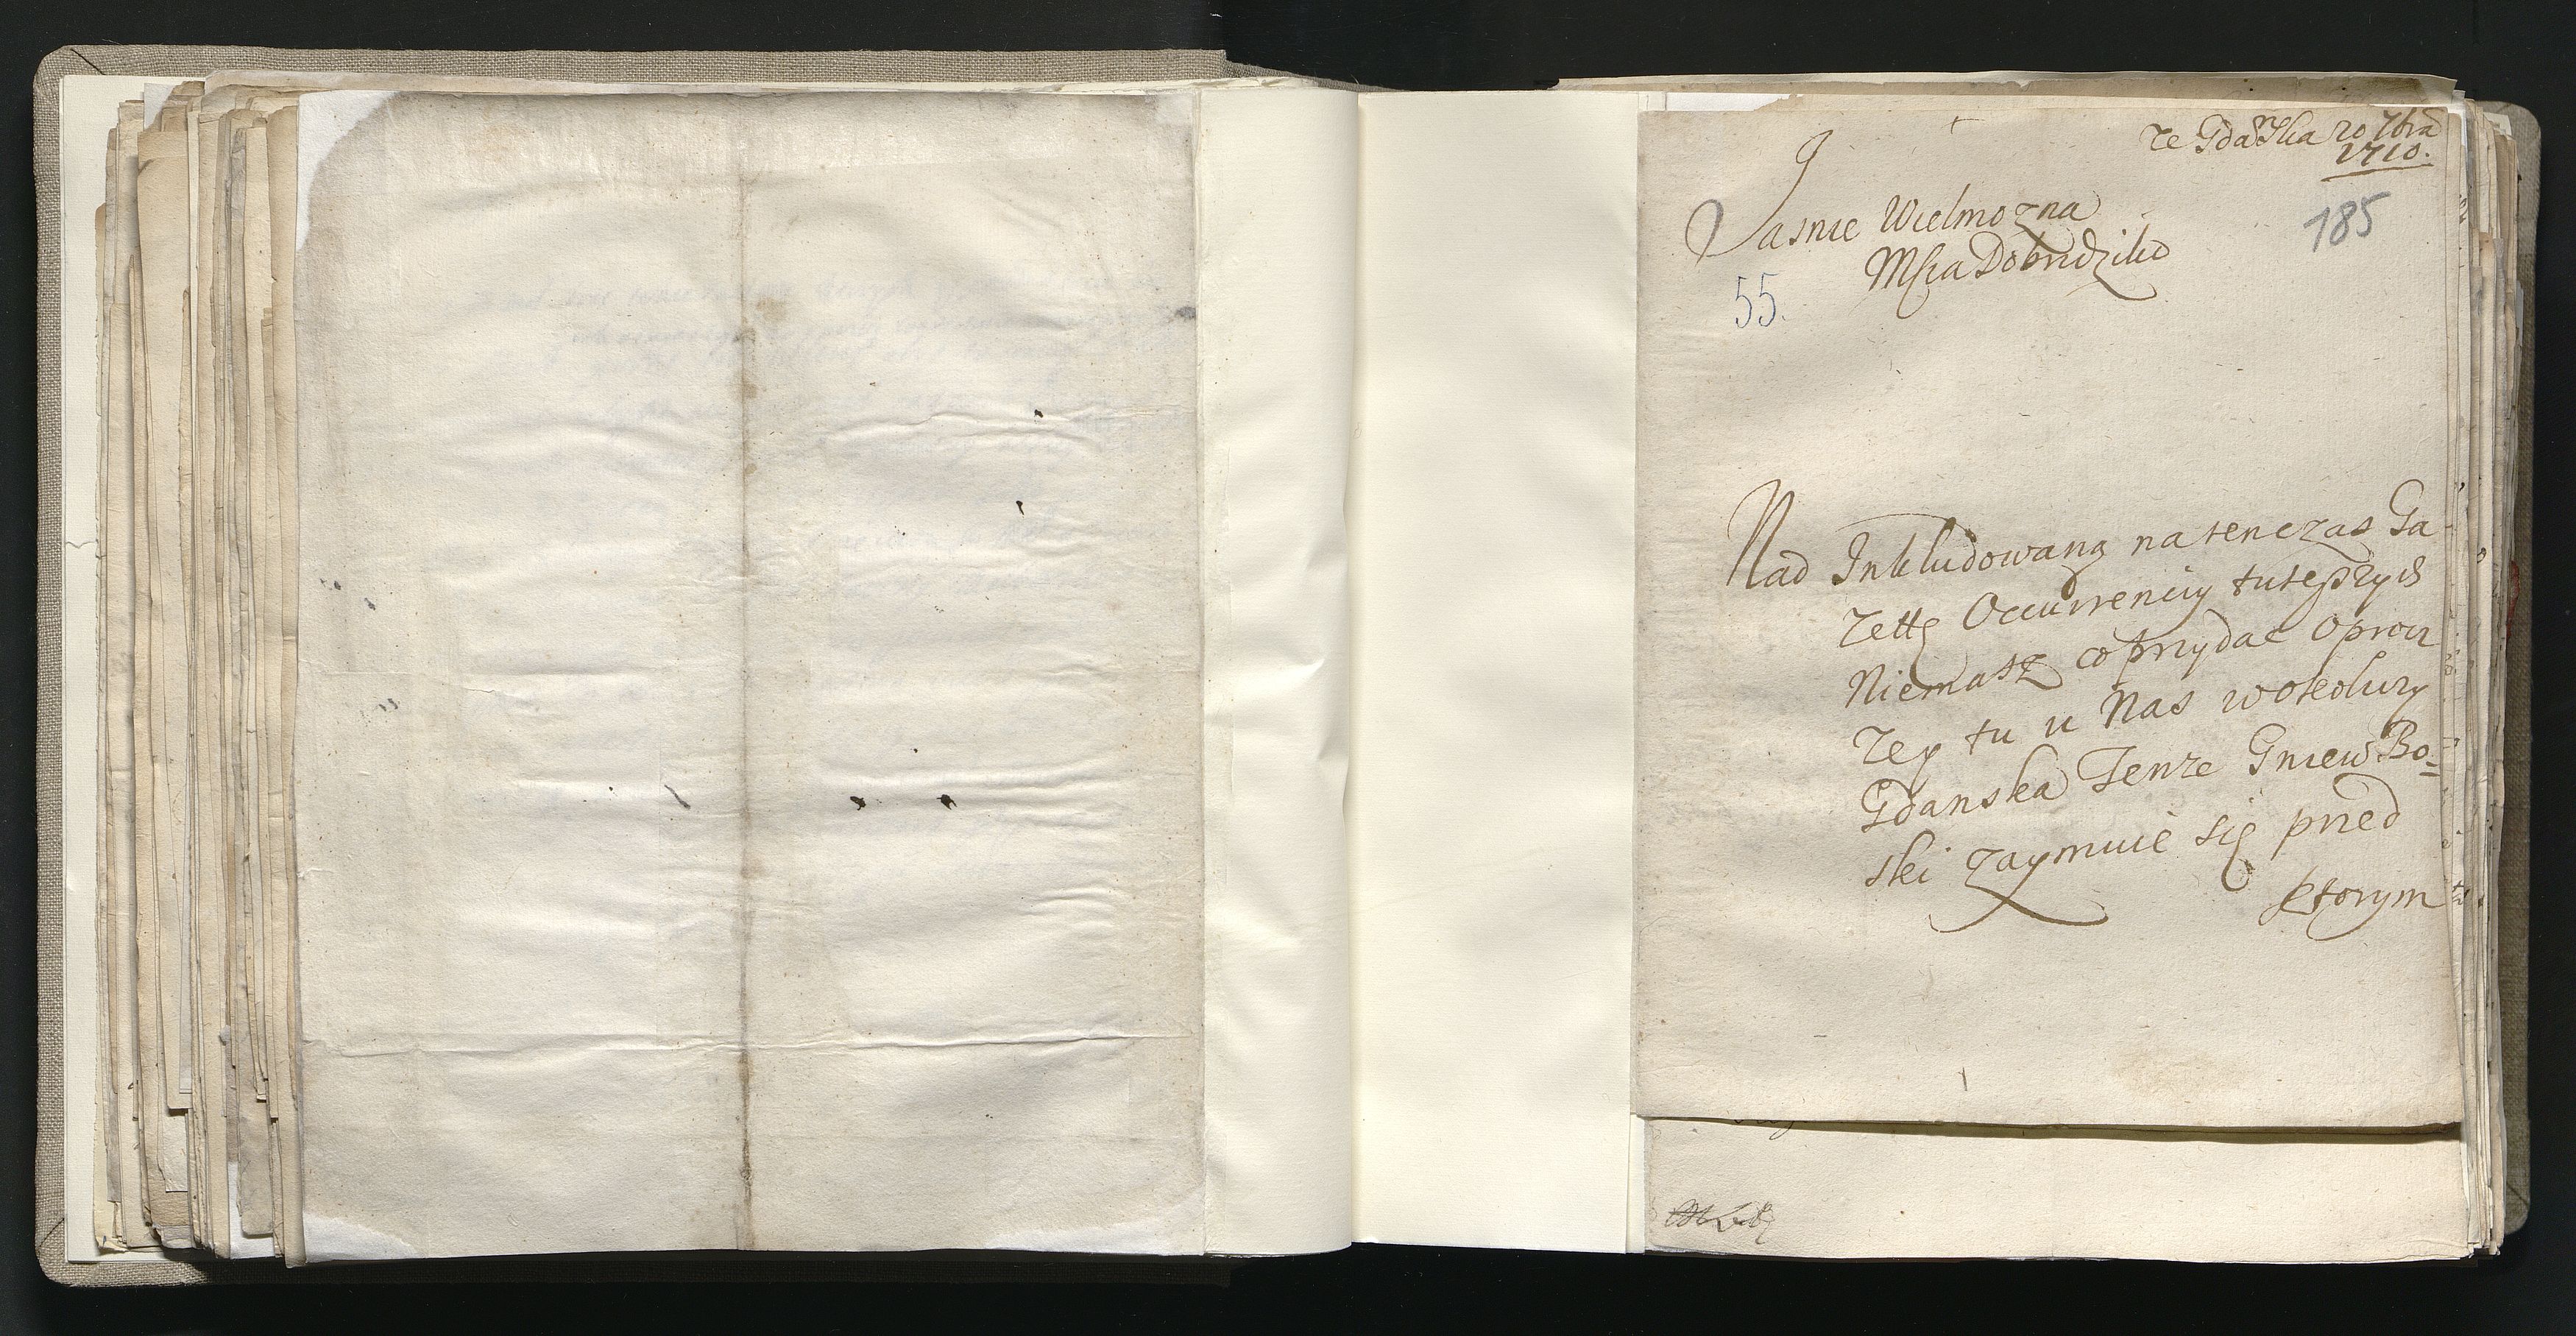 Ze Gdańska 20 7bra
1710.
185
Jasnie Wielmozna
Mscia Dobrodziko
55.
Nad Inkludowaną na tenczas Ga
zettę Occurrenciy tuteyszych
Niemasz co przydac oprocz
zey tu u Nas wokoliczy
Gdanska Tenze Gniew Bo=
ski zaymuie się przed
ktorym